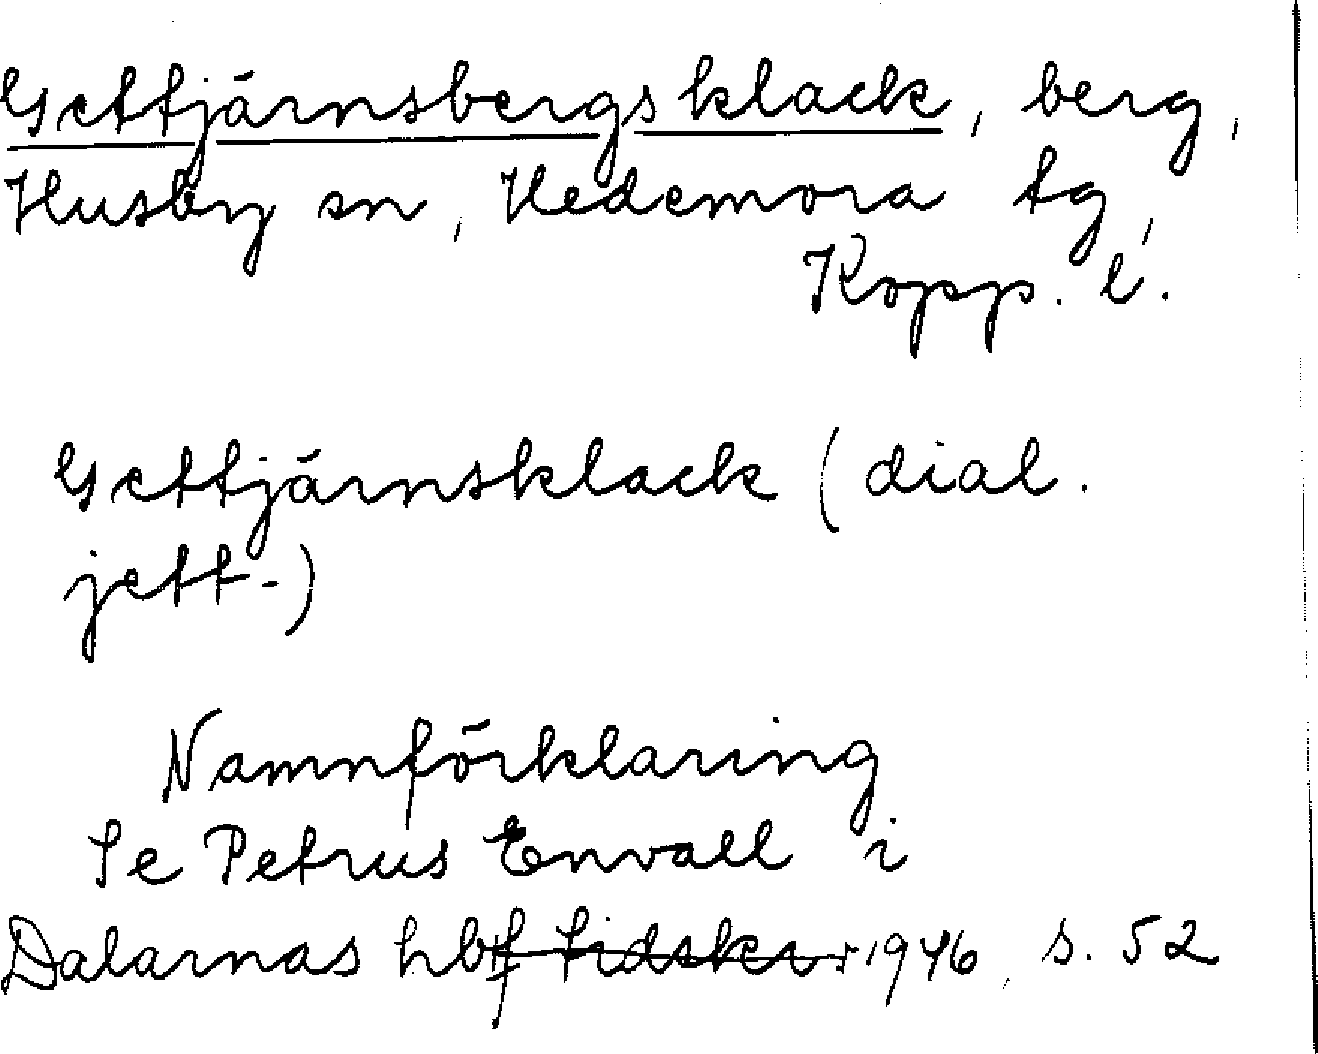 Gettjärnsbergsklack, berg,
Husby sn, Hedemora tg,
Kopp. l.
Gettjärnsklack (dial.
jett-)
Namnförklaring
Se Petrus Envall i
Dalarnas hbf tidskr 1946, s. 52